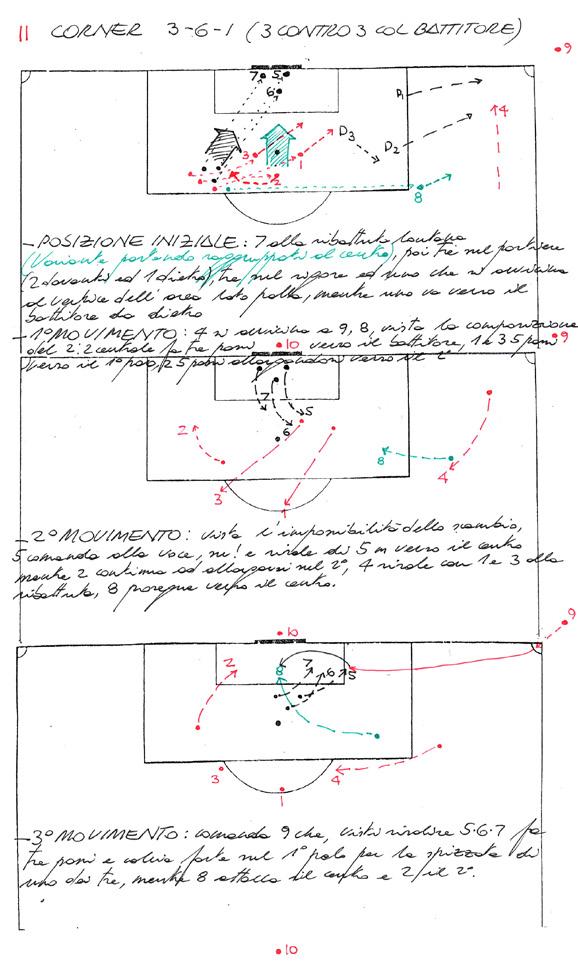 11 CORNER 3-6-1 (3 CONTRO 3 COL BATTITORE)
9
7 5
6
D1
4
3
D3
D2
1
2
8
- POSIZIONE INIZIALE: 7 alla ribattuta lontana
(Variante partendo raggruppati al centro), poi tre sul portiere
(2 davanti ed 1 dietro), tre sul rigore ed uno che si avvicina
al vertice dell'area lato palla, mentre uno va verso il
battitore da dietro
- 1° MOVIMENTO: 4 si avvicina a 9, 8, vista la composizione
del 2:2 centrale fa tre passi verso il battitore, 1 e 3 5 passi
verso il 1° palo, 2 5 passi allargandosi verso il 2°
10
9
7
5
6
2
8
3
1
4
- 2° MOVIMENTO: vista l'impossibilità dello scambio,
5 comanda alla voce, su! e risale di 5 m verso il centro
mentre 2 continua ad allargarsi nel 2°, 4 risale con 1 e 3 alla
ribattuta, 8 prosegue verso il centro.
9
10
2
8
7
6
5
3
4
1
- 3° MOVIMENTO: comanda 9 che, visti risalire 5.6.7 fa
tre passi e calcia forte sul 1° palo per la spizzata di
uno dei tre, mentre 8 attacca il centro e 2 il 2°.
10